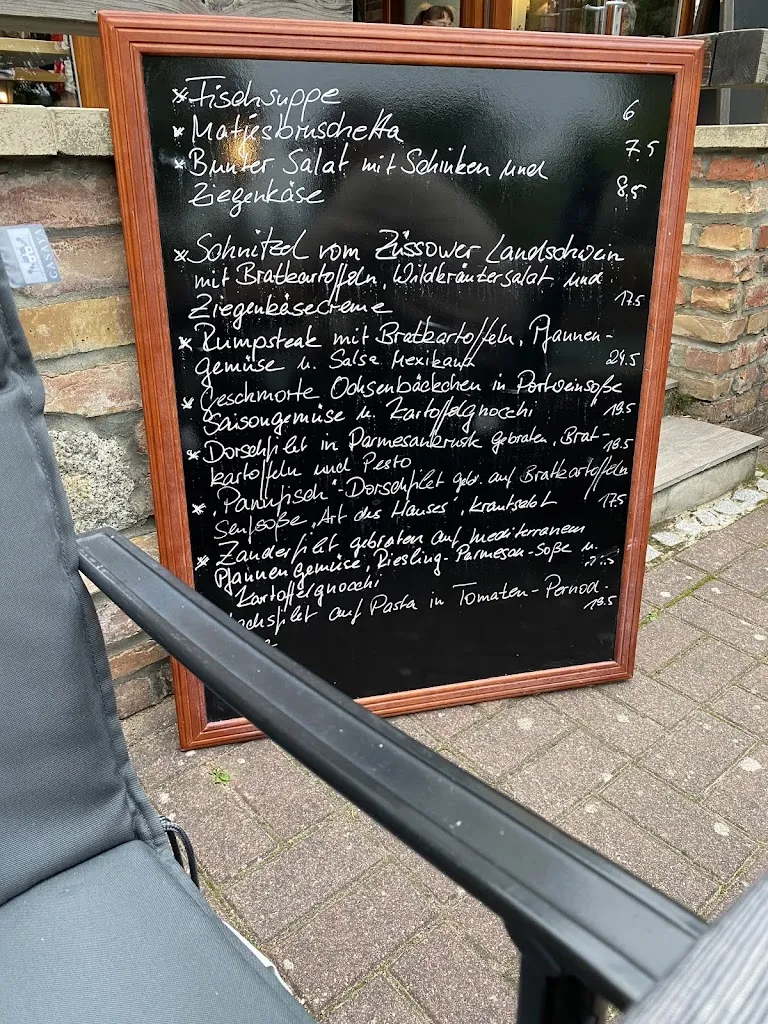 * Fischsuppe 6
* Matjesbruschetta 7.5
* Bunter Salat mit Schinken und
Ziegenkäse 8,5
* Schnitzel vom Züssower Landschwein
mit Bratkartoffeln, Wildkräutersalat und
Ziegenkäsecreme 17.5
* Rumpsteak mit Bratkartoffeln, Pfannen-
gemüse u. Salsa Mexikana 24.5
* Geschmorte Ochsenbäckchen in Portweinsoße
Saisongemüse u. Kartoffelgnocchi 19.5
* Dorschfilet in Parmesankruste gebraten, Brat-
kartoffeln und Pesto 18.5
* "Pannfisch"-Dorschfilet gebr. auf Bratkartoffeln
Senfsoße "Art des Hauses", Krautsalat 17.5
* Zanderfilet gebraten auf mediterranem
Pfannengemüse, Riesling-Parmesan-Soße u.
Kartoffelgnocchi
auf Pasta in Tomaten-Pernod- 19.5